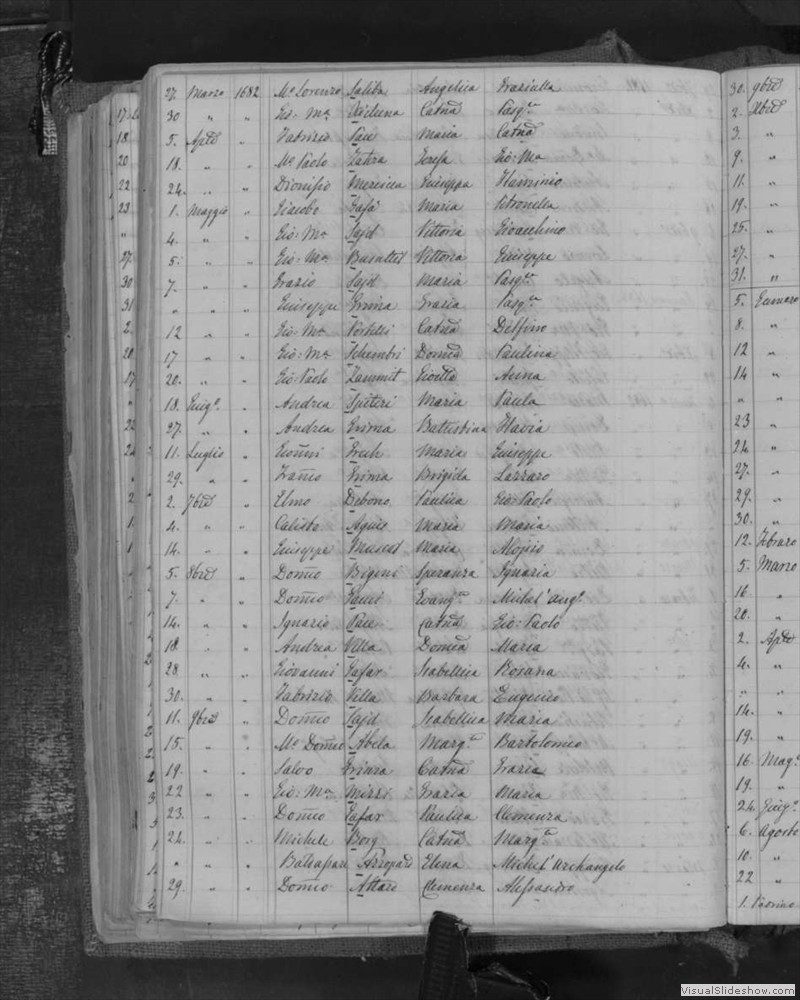 27. Marzo 1682 Mo Lorenzo Saliba Angelica Graziulla
30 " " Gio: Ma Xicluna Catna Pasqa
5. Aple " Fabrizio Pau Maria Catna
18. " " Mo Paolo Zahra Teresa Gio: Ma
24. " " Dionisio Mercieca Giuseppa Flaminio
1. Maggio " Giacobo Zafa Maria Petronella
4. " " Gio: Ma Sajd Vittoria Gioachino
5. " " Gio: Ma Busuttil Vittoria Giuseppe
7. " " Grazio Sajd Maria Pasqa
" " " Giuseppe Grima Grazia Pasqa
12 " " Gio: Ma Portelli Catna Delfino
17 " " Gio: Ma Schembri Domca Paulina
20. " " Gio Paolo Zammit Gioetta Anna
18. Giugo " Andrea Spiteri Maria Paula
27. " " Andrea Grima Battistina Flavia
11. Luglio " Gionni Grech Maria Giuseppe
29. " " Franco Grima Brigida Lazzaro
2. 7bre " Elmo Debono Paulica Gio: Paolo
4. " " Calisto Agius Maria Maria
14. " " Giuseppe Muscat Maria Aloisio
5. 8bre " Domco Bigeni Speranza Ignazia
7. " " Domco Evanga Michel' Ango
14. " " Ignazio Pau Catna Gio: Paolo
18. " " Andrea Villa Domca Maria
28 " " Giovanni Zafar Isabellica Rosana
30. " " Fabrizio Villa Barbara Eugenio
11. 9bre " Domco Sajd Isabellica Maria
15. " " Mo Domco Abela Marga Bartolomeo
19. " " Salvo Grima Catna Grazia
22 " " Gio: Ma Mizzi Grazia Maria
23. " " Domco Zafar Paulica Clemenza
24. " " Michele Borg Catna Marga
" " " Baltassare Elena Michel' Archangelo
29. " " Domco Attard Clemenza Alessandro
30. 9bre
2. Xbre
3. "
9. "
11. "
19. "
25. "
27. "
31. "
5. Gennaro
8. "
12 "
14 "
" "
23 "
24. "
27. "
29. "
30. "
12. Febraro
5. Marzo
16. "
20. "
2. Aple
4. "
" "
14. "
19. "
16 Mago
19. "
24. Giugo
6. Agosto
10. "
22 "
1.
VisualSlideshow.com